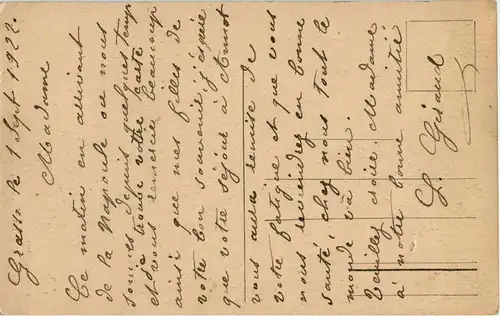 Grasse le 1 Sept 1922.
Madame
Ce matin en arrivant
de la Napoule ou nous
sommes depuis quelques temps
je trouve votre carte
et vous remercie beaucoup
ainsi que mes filles de
votre bon souvenir j'espère
que votre séjour à Annot
vous aura remise de
votre fatigue et que vous
nous reviendrez en bonne
santé, chez nous tout le
monde va bien.
Veuillez croire, Madame
à notre bonne amitié
G. Giraud